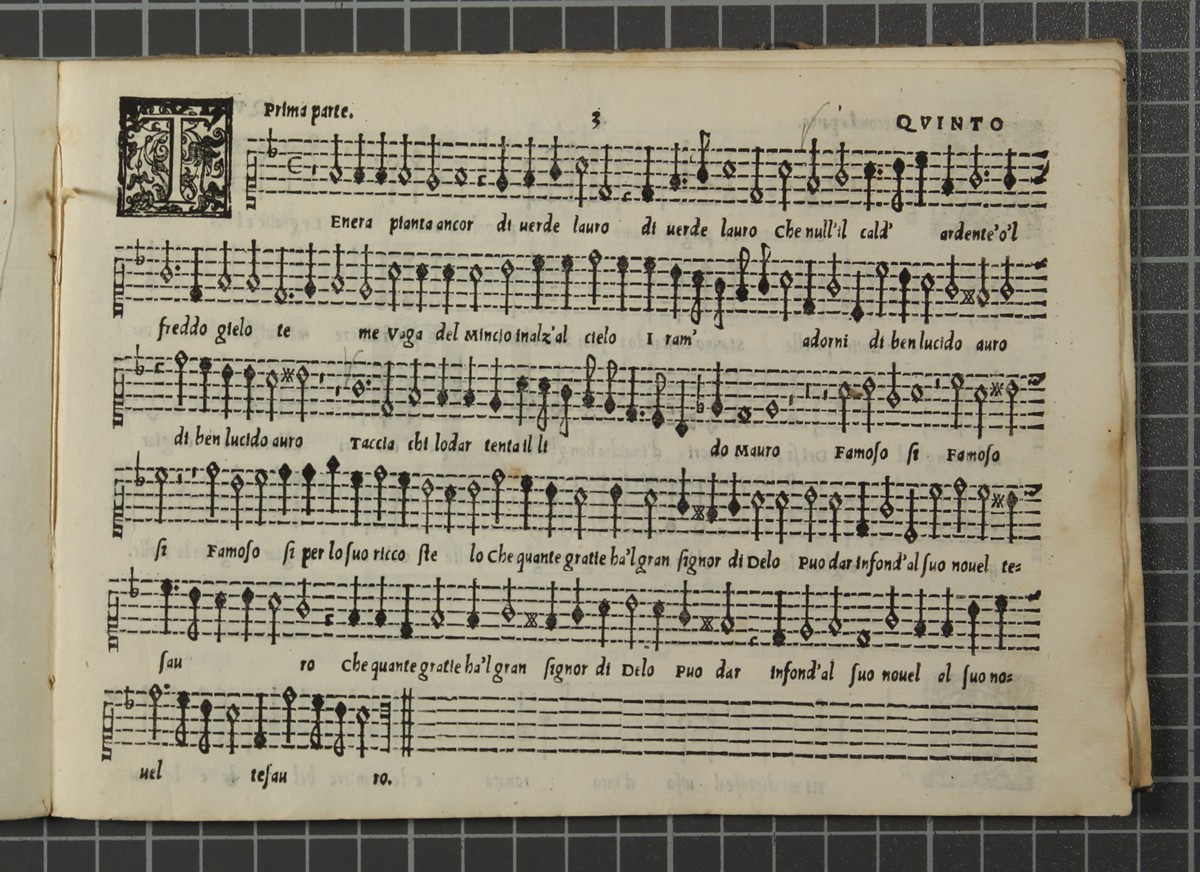 Prima parte. 3 QVINTO
TEnera pianta ancor di uerde lauro di uerde lauro Che null'il cald' ardente'o'l
freddo gielo te me Vaga del Mincio inalz'al cielo I ram' adorni di ben lucido auro
di ben lucido auro Taccia chi lodar tenta il li do Mauro Famoso si Famoso
si Famoso si per lo suo ricco ste lo Che quante gratie ha'l gran signor di Delo Puo dar infond'al suo nouel te=
sau ro Che quante gratie ha'l gran signor di Delo Puo dar infond'al suo nouel al suo no=
uel tesau ro.